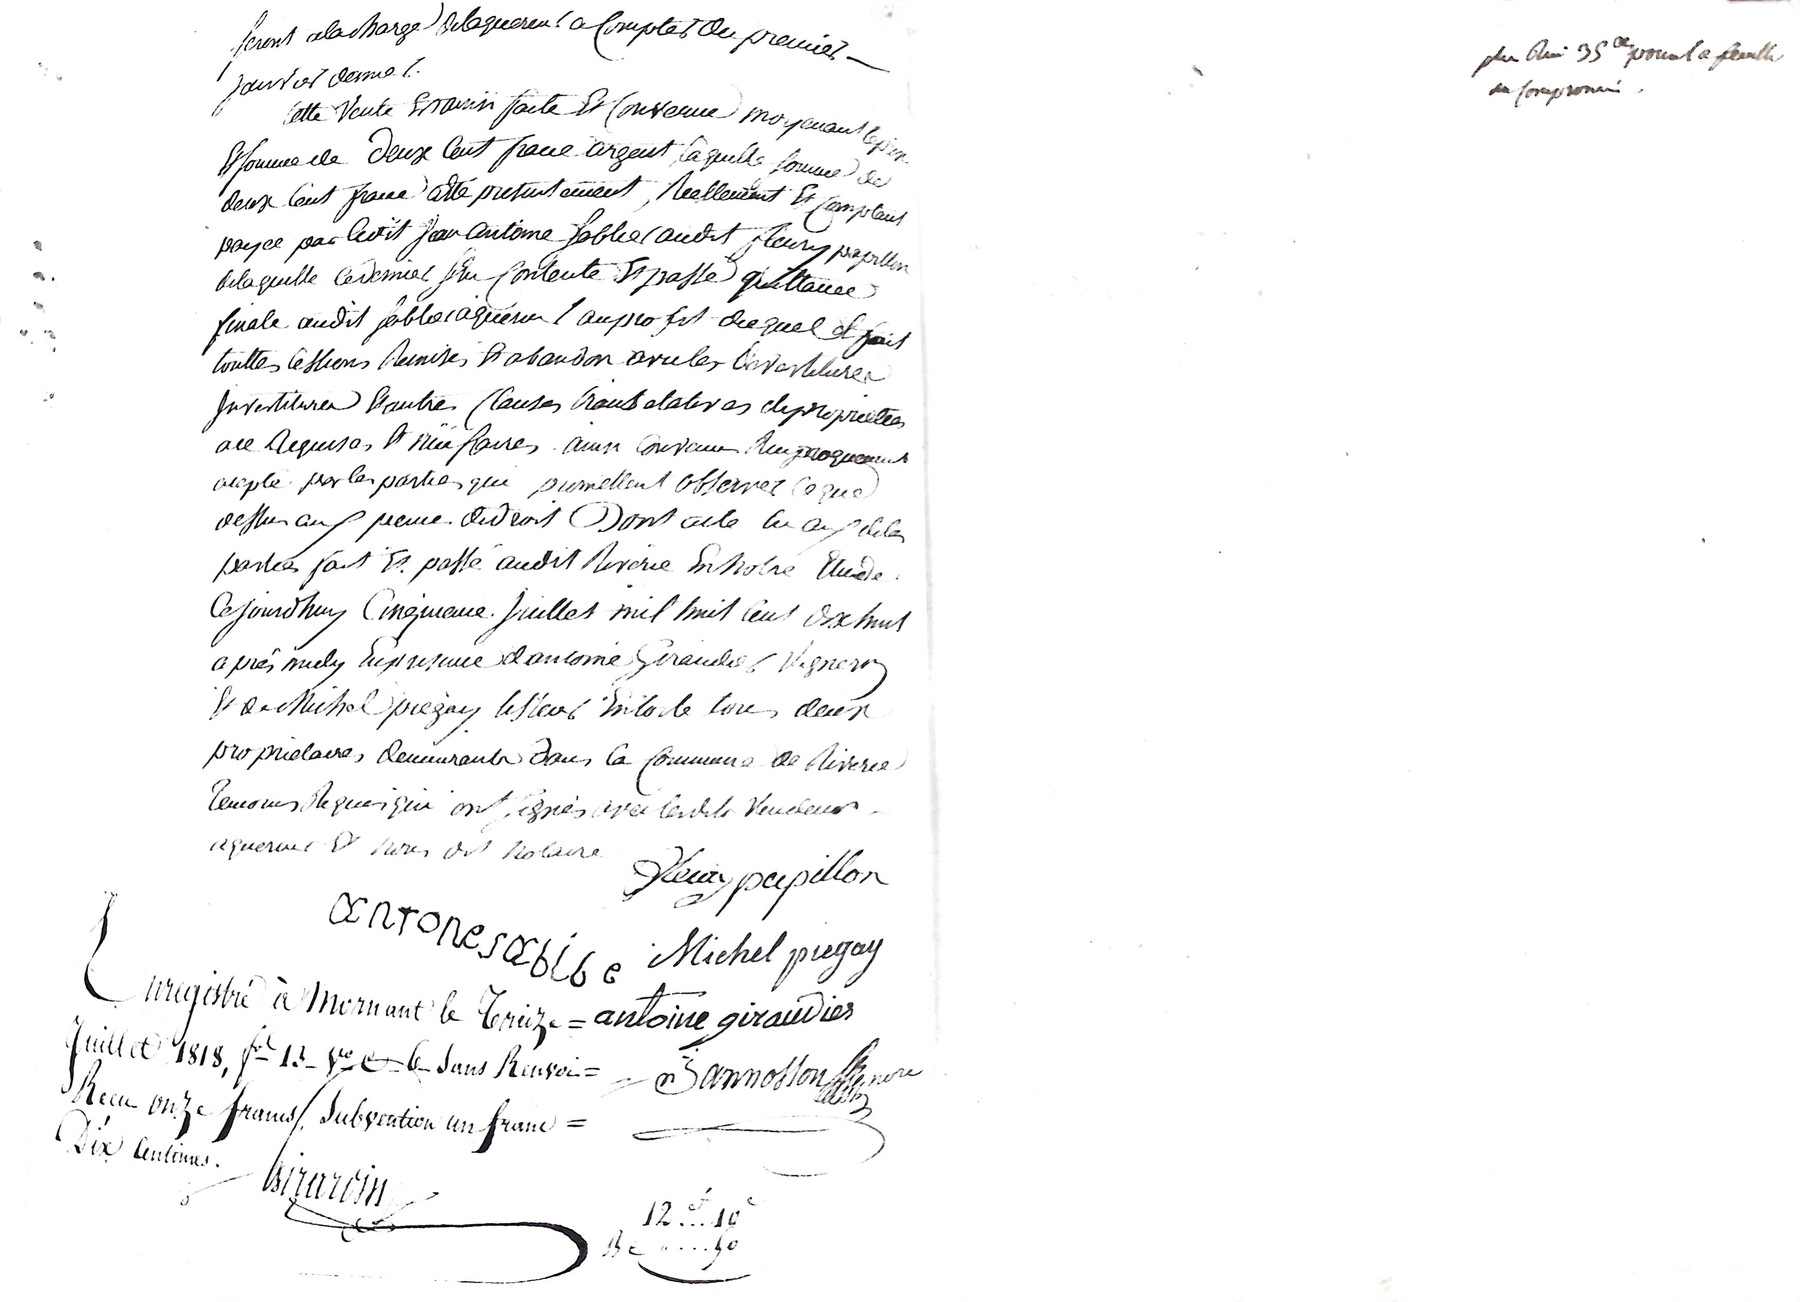 seront alacharge delaquereur a Compter du premier
janvier dernier.
Cette Vente Est ainsi faite Et Convenue moyenant le prix
Et somme de deux Cent franc argent laquelle somme de
deux Cent franc a Eté presentement, Reellement Et Comptant
payée par ledit Jean antoine Sablier audit fleury papillon
delaquelle cedernier sEn Contente Et passe quittance
finale audit Sablier aquereur auprofit duquel il fait
touttes Cessions Remises Et abandon avec les devestitures
Investitures Et autres Clauses translatives de proprietés
ace Requises Et necessaires. ainsi Convenu Reciproquement
accepté par les parties qui promettent observer Ceque
dessus aux peines dedroit Dont acte lu aux dites
parties fait Et passé audit Riverie En notre Etude
Cejourdhuy Cinquieme juillet mil huit Cent dix huit
aprés midy Enpresence dantoine Giraudier Vigneron
Et de Michel pregay tisseur Entoile tous deux
proprietaires demeurants dans la Commune de Riverie
temoins Requis qui ont signés avec lesdits Vendeur
aquereur Et nous dit notaire
fleury papillon
antone sablie
Michel pregay
Enregistré à Mornant le Treize =
antoine giraudier
Juillet 1818, fol 13 Vo C 6 sans Renvoi =
Jannosson nore
Recu onze francs, Subvention un franc =
Dix Centimes.
Girardin
12 f... 10 c
50
plus Remi 35 c pour la feuille
du Compromis.